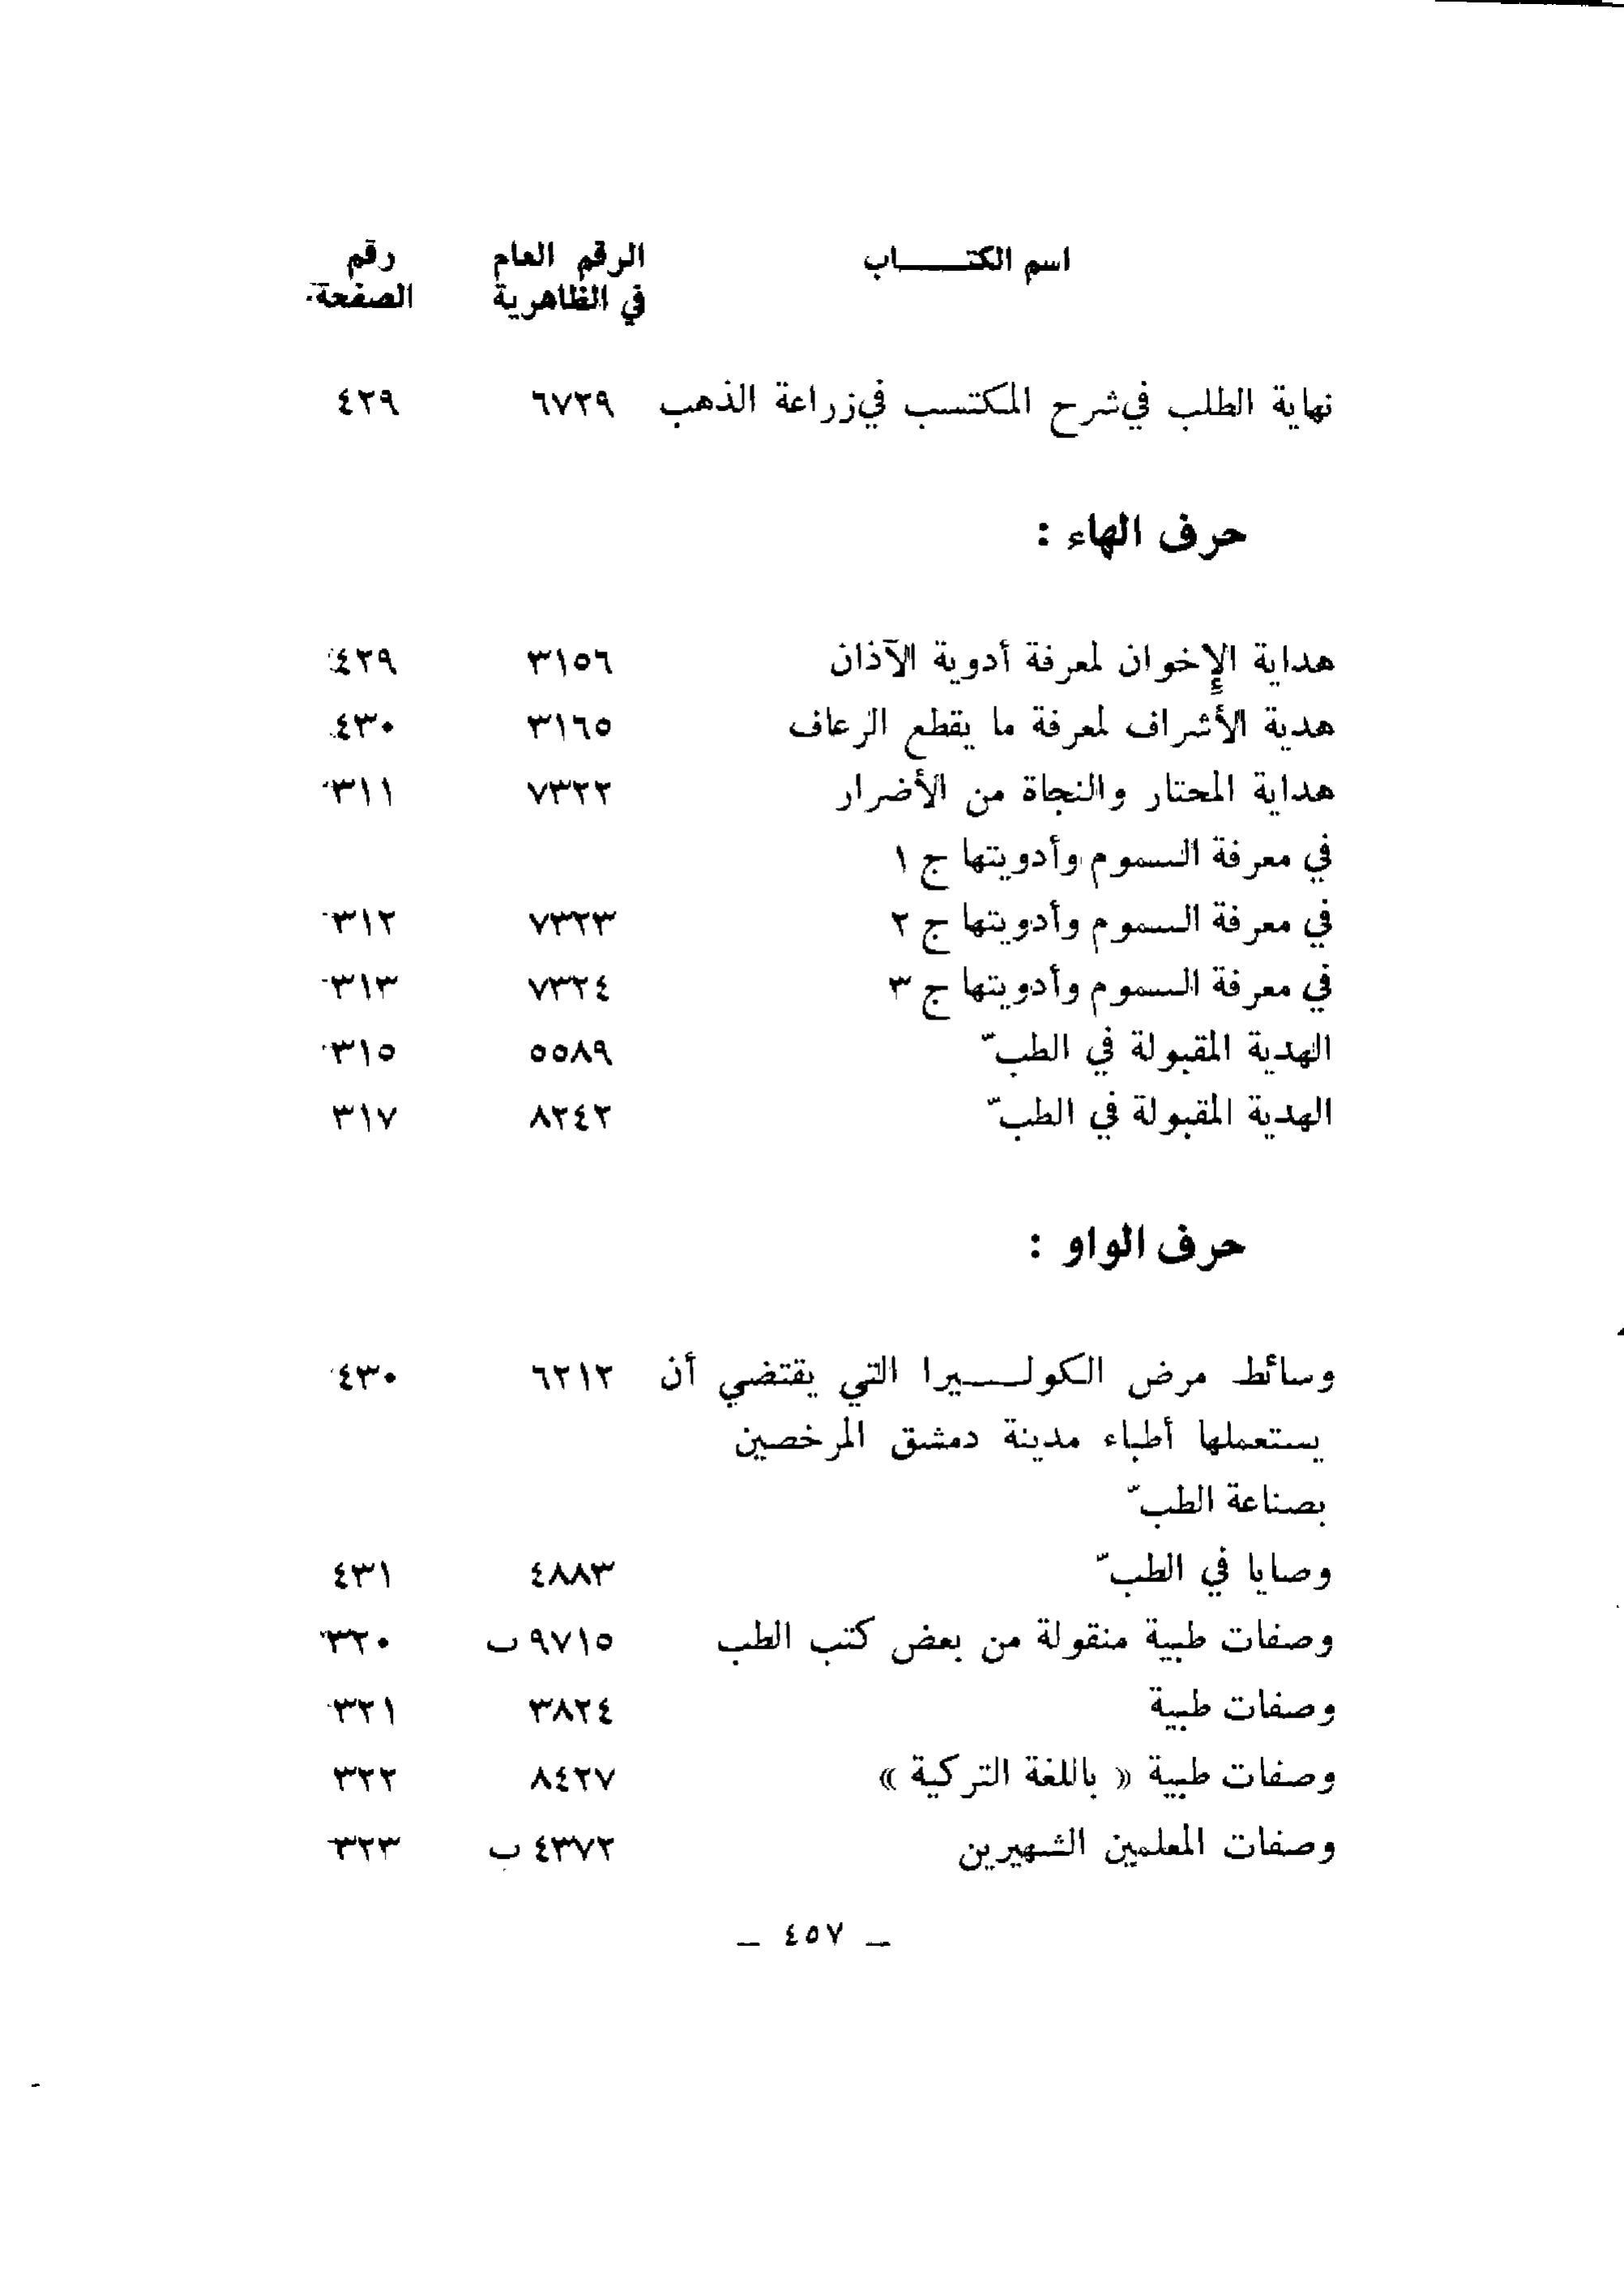 اسم الكتـــــاب الرقم العام رقم
في الظاهرية الصفحة
نهاية الطلب في شرح المكتسب في زراعة الذهب ٦٧٢٩ ٤٢٩
حرف الهاء :
هداية الإخوان لمعرفة أدوية الآذان ٣١٥٦ ٤٢٩
هدية الأشراف لمعرفة ما يقطع الرعاف ٣١٦٥ ٤٣٠
هداية المحتار والنجاة من الأضرار ٧٣٢٢ ٣١١
في معرفة السموم وأدويتها ج ١
في معرفة السموم وأدويتها ج ٢ ٧٣٢٣ ٣١٢
في معرفة السموم وأدويتها ج ٣ ٧٣٢٤ ٣١٣
الهدية المقبولة في الطبّ ٥٥٨٩ ٣١٥
الهدية المقبولة في الطبّ ٨٢٤٢ ٣١٧
حرف الواو :
وسائط مرض الكولـــيرا التي يقتضي أن ٦٢١٢ ٤٣٠
يستعملها أطباء مدينة دمشق المرخصين
بصناعة الطبّ
وصايا في الطبّ ٤٨٨٣ ٤٣١
وصفات طبية منقولة من بعض كتب الطب ٩٧١٥ ب ٣٢٠
وصفات طبية ٣٨٢٤ ٣٢١
وصفات طبية « باللغة التركية » ٨٤٢٧ ٣٢٢
وصفات المعلمين الشهيرين ٤٣٧٢ ب ٣٢٣
– ٤٥٧ –